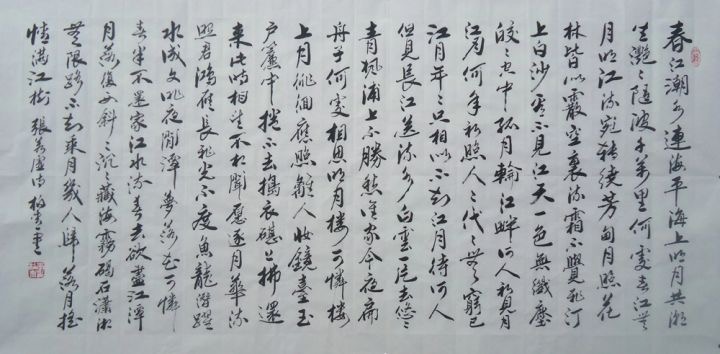 春江潮水連海平海上明月共潮
生灩々隨波千萬里何處春江無
月明江流宛轉繞芳甸月照花
林皆似霰空裏流霜不覺飛汀
上白沙看不見江天一色無纖塵
皎々空中孤月輪江畔何人初見月
江月何年初照人々代々無窮已
江月年々只相似不知江月待何人
但見長江送流水白雲一片去悠々
青楓浦上不勝愁誰家今夜扁
舟子何處相思明月樓可憐樓
上月徘徊應照離人妝鏡臺玉
戶簾中捲不去擣衣砧上拂還
來此時相望不相聞願逐月華流
照君鴻雁長飛光不度魚龍潛躍
水成文昨夜閑潭夢落花可憐
春半不還家江水流春去欲盡江潭
月落復西斜々沉々藏海霧碣石瀟湘
無限路不知乘月幾人歸落月搖
情滿江樹 張若虛詩